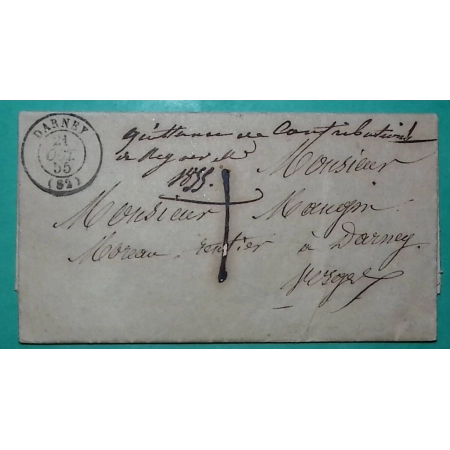 DARNEY
21
OCT.
55
(82)
quittance de Contributions
de
1855.
Monsieur
Monsieur Maugin
Moreau rentier à Darney
Vosges
1